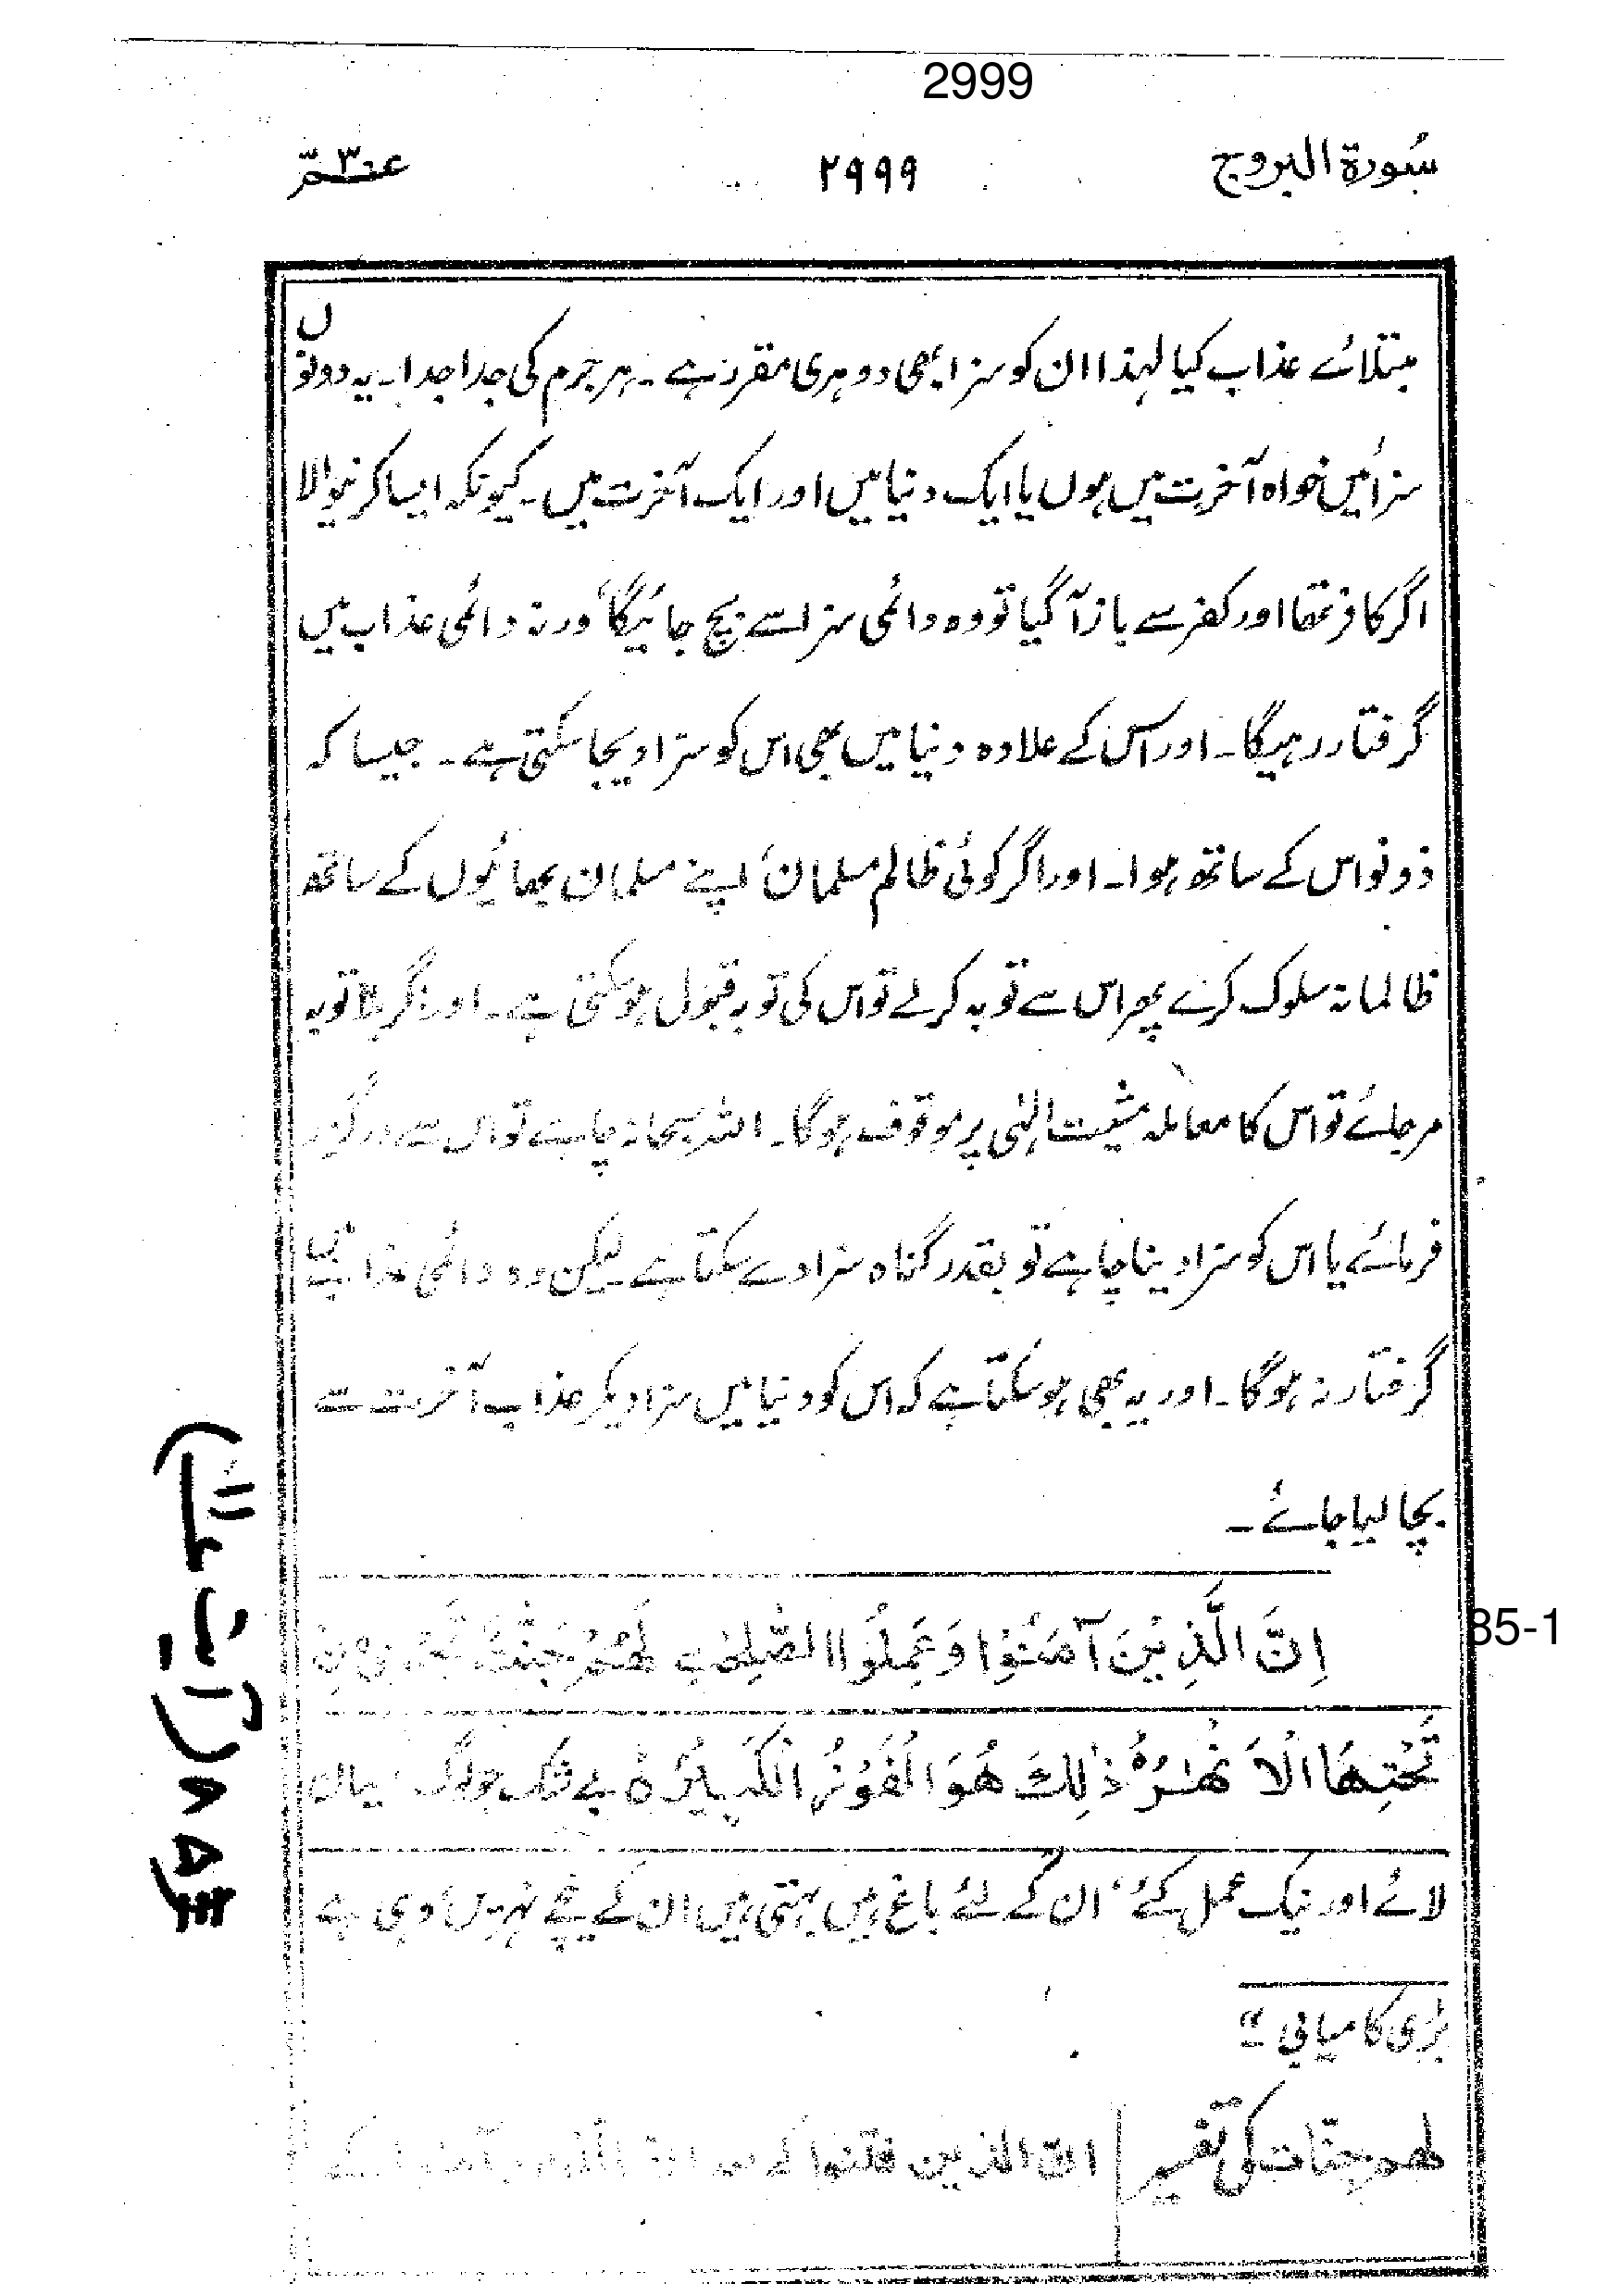 2999
سُورۃ البروج
۲۹۹۹
عمّ ۳۰
مبتلائے عذاب کیا لہٰذا ان کو سزا بھی دوہری مقرر ہے ۔ ہر جرم کی جدا جدا ۔ یہ دونوں
سزائیں خواہ آخرت میں ہوں یا ایک دنیا میں اور ایک آخرت میں ۔ کیونکہ ایسا کرنیوالا
اگر کافر تھا اور کفر سے باز آگیا تو وہ دائمی سزا سے بچ جائیگا، ورنہ دائمی عذاب میں
گرفتار رہیگا ۔ اور اس کے علاوہ دنیا میں بھی اس کو سزا دیجا سکتی ہے ۔ جیسا کہ
ذونواس کے ساتھ ہوا ۔ اور اگر کوئی ظالم مسلمان، اپنے مسلمان بھائیوں کے ساتھ
ظالمانہ سلوک کرے پھر اس سے توبہ کرلے تو اس کی توبہ قبول ہوسکتی ہے ۔ اور اگر بلا توبہ
مرجائے تو اس کا معاملہ مشیت الٰہی پر موقوف ہوگا ۔ اللہ سبحانہ چاہے تو اس سے درگزر
فرمائے یا اس کو سزا دینا چاہے تو بقدر گناہ سزا دے سکتا ہے لیکن وہ دائمی عذاب میں
گرفتار نہ ہوگا ۔ اور یہ بھی ہوسکتا ہے کہ اس کو دنیا میں سزا دیکر عذاب آخرت سے
بچا لیا جائے ۔
اِنَّ الَّذِیْنَ آمَنُوْا وَعَمِلُوا الصّٰلِحٰتِ لَهُمْ جَنّٰتٌ تَجْرِیْ مِنْ
85-1
تَحْتِهَا الْاَنْهٰرُ ذٰلِكَ هُوَ الْفَوْزُ الْكَبِیْرُ ہ بے شک جو لوگ ایمان
لائے اور نیک عمل کئے، ان کے لئے باغ ہیں بہتی ہیں ان کے نیچے نہریں، وہی ہے
بڑی کامیابی ۔“
لهم جنّات کی تفسیر
انّ الذین فتنوا کے بعد انّ الّذین آمنوا کے